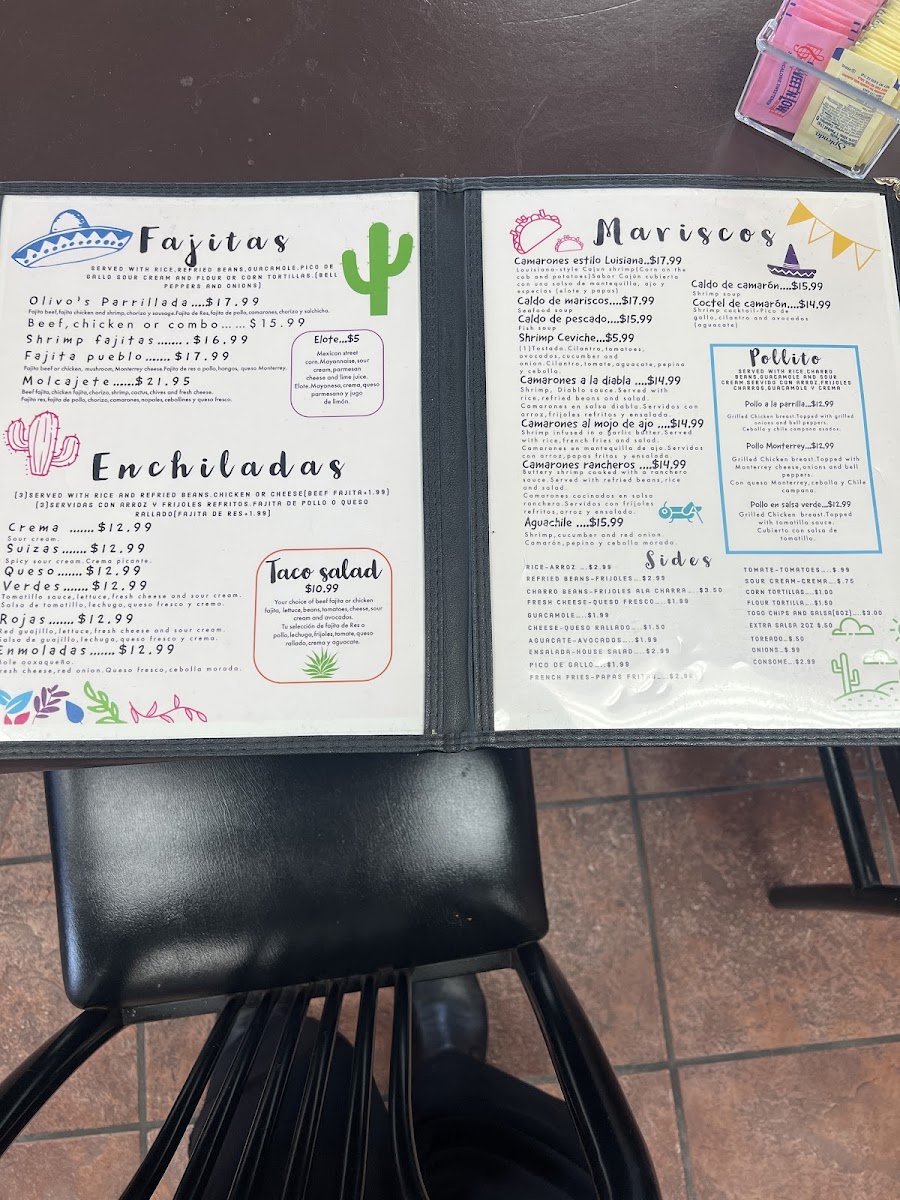 Fajitas
SERVED WITH RICE,REFRIED BEANS,GUACAMOLE,PICO DE
GALLO SOUR CREAM AND FLOUR OR CORN TORTILLAS.(BELL
PEPPERS AND ONIONS)
Olivo's Parrillada....$17.99
Fajita beef,fajita chicken and shrimp,chorizo y sausage.Fajita de Res,fajita de pollo,camarones,chorizo y salchicha.
Beef,chicken or combo......$15.99
Shrimp fajitas.......$16.99
Fajita pueblo.......$17.99
Fajita beef or chicken, mushroom,Monterrey cheese.Fajita de res o pollo,hongos, queso Monterrey.
Molcajete......$21.95
Beef fajita,chicken fajita,chorizo,shrimp,cactus,chives and fresh cheese.
Fajita res,fajita de pollo,chorizo,camarones,nopales,cebollines y queso fresco.
Elote...$5
Mexican street
corn.Mayonnaise,sour
cream,parmesan
cheese and lime juice.
Elote.Mayonesa,crema,queso
parmesano y jugo
de limón.
Enchiladas
(3)SERVED WITH RICE AND REFRIED BEANS.CHICKEN OR CHEESE(BEEF FAJITA+1.99)
(3)SERVIDAS CON ARROZ Y FRIJOLES REFRITOS.FAJITA DE POLLO O QUESO
RALLADO(FAJITA DE RES+1.99)
Crema .......$12.99
Sour cream.
Suizas.......$12.99
Spicy sour cream.Crema picante.
Queso.......$12.99
Verdes.......$12.99
Tomatillo sauce,lettuce,fresh cheese and sour cream.
Salsa de tomatillo,lechuga,queso fresco y crema.
Rojas.......$12.99
Red guajillo,lettuce,fresh cheese and sour cream.
Salsa de guajillo,lechuga,queso fresco y crema.
Enmoladas.......$12.99
Mole oaxaqueño.
Fresh cheese,red onion.Queso fresco,cebolla morada.
Taco salad
$10.99
Your choice of beef fajita or chicken
fajita, lettuce,beans,tomatoes,cheese,sour
cream and avocados.
Tu selección de fajita de Res o
pollo,lechuga,frijoles,tomate,queso
rallado,crema y aguacate.
Mariscos
Camarones estilo Luisiana..$17.99
Louisiana-style Cajun shrimp(Corn on the
cob and potatoes)Sabor Cajún cubierto
con una salsa de mantequilla, ajo y
especias (elote y papas)
Caldo de mariscos....$17.99
Seafood soup
Caldo de pescado....$15.99
Fish soup
Shrimp Ceviche....$5.99
(1)Tostada.Cilantro,tomatoes,
avocados,cucumber and
onion.Cilantro,tomate,aguacate,pepino
y cebolla.
Camarones a la diabla ....$14.99
Shrimp, Diablo sauce.Served with
rice,refried beans and salad.
Camarones en salsa diabla.Servidos con
arroz,frijoles refritos y ensalada.
Camarones al mojo de ajo ....$14.99
Shrimp infused in a garlic butter.Served
with rice,french fries and salad.
Camarones en mantequilla de ajo.Servidos
con arroz,papas fritas y ensalada
Camarones rancheros ....$14.99
Buttery shrimp cooked with a ranchero
sauce.Served with refried beans,rice
and salad.
Camarones cocinados en salsa
ranchera.Servidos con frijoles
refritos,arroz y ensalada.
Aguachile ....$15.99
Shrimp,cucumber and red onion.
Camarón,pepino y cebolla morada.
Caldo de camarón....$15.99
Shrimp soup
Coctel de camarón....$14.99
Shrimp cocktail-Pico de
gallo,cilantro and avocados
(aguacate)
Pollito
SERVED WITH RICE,CHARRO
BEANS,GUACAMOLE AND SOUR
CREAM.SERVIDO CON ARROZ,FRIJOLES
CHARROS,GUACAMOLE Y CREMA
Pollo a la parrilla...$12.99
Grilled Chicken breast.Topped with grilled
onions and bell peppers.
Cebolla y chile campana asados.
Pollo Monterrey..$12.99
Grilled Chicken breast.Topped with
Monterrey cheese,onions and bell
peppers.
Con queso Monterrey,cebolla y Chile
campana.
Pollo en salsa verde..$12.99
Grilled Chicken breast.Topped
with tomatillo sauce.
Cubierto con salsa de
tomatillo.
Sides
RICE-ARROZ ...$2.99
REFRIED BEANS-FRIJOLES...$2.99
CHARRO BEANS-FRIJOLES ALA CHARRA...$3.50
FRESH CHEESE-QUESO FRESCO....$1.99
GUACAMOLE....$1.99
CHEESE-QUESO RALLADO...$1.50
AGUACATE-AVOCADOS...$1.99
ENSALADA-HOUSE SALAD...$2.99
PICO DE GALLO....$1.99
FRENCH FRIES-PAPAS FRITAS...$2.99
TOMATE-TOMATOES...$.99
SOUR CREAM-CREMA...$.75
CORN TORTILLAS...$1.00
FLOUR TORTILLA...$1.50
TOGO CHIPS AND SALSA(8OZ)...$3.00
EXTRA SALSA 2OZ $.50
TOREADO..$.50
ONIONS..$.99
CONSOME...$2.99
SWEET'N LOW
Splenda